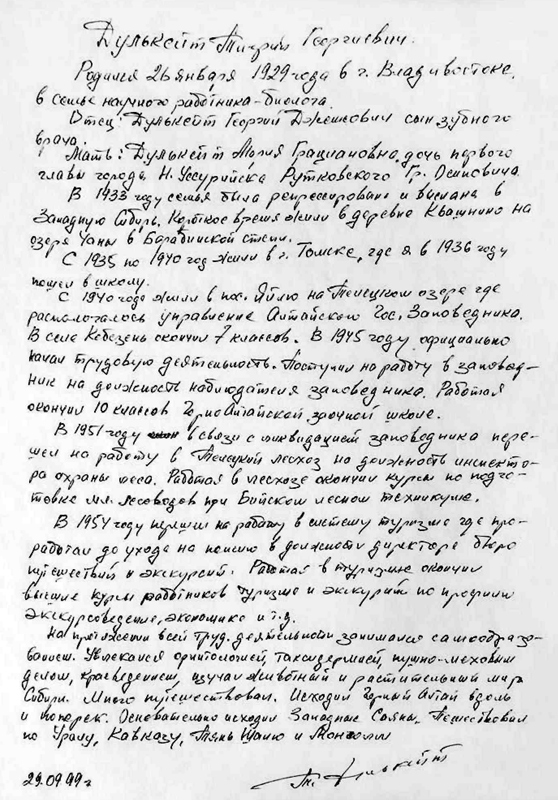 Дулькейт Тигрий Георгиевич.
Родился 26 января 1929 года в г. Владивостоке,
в семье научного работника-биолога.
Отец: Дулькейт Георгий Джемсович сын зубного
врача.
Мать: Дулькейт Мария Грациановна, дочь первого
главы города Н. Уссурийска Рутковского Гр. Осиповича.
В 1933 году семья была репрессирована и выслана в
Западную Сибирь. Короткое время жили в деревне Квашнино на
озере Чаны в Барабинской степи.
С 1935 по 1940 год жили в г. Томске, где я в 1936 году
пошел в школу.
С 1940 года жили в пос. Яйлю на Телецком озере где
располагалось управление Алтайского Гос. Заповедника.
В селе Кебезень окончил 7 классов. В 1945 году официально
начал трудовую деятельность. Поступил на работу в заповед-
ник на должность наблюдателя заповедника. Работая
окончил 10 классов Горно Алтайской заочной школе.
В 1951 году в связи с ликвидацией заповедника пере-
шел на работу в Телецкий лесхоз на должность инспекто-
ра охраны леса. Работая в лесхозе окончил курсы по подго-
товке мл. лесоводов при Бийском лесном техникуме.
В 1954 году перешел на работу в систему туризма где про-
работал до ухода на пенсию в должности директора бюро
путешествий и экскурсий. Работая в туризме окончил
высшие курсы работников туризма и экскурсий по профилю
экскурсоведение, экономика и т.д.
На протяжении всей труд. деятельности занимался самообразо-
ванием. Увлекался орнитологией, таксидермией, пушно-меховым
делом, краеведением, изучал животный и растительный мир
Сибири. Много путешествовал. Исходил Горный Алтай вдоль
и поперек. Основательно исходил Западные Саяны. Путешествовал
по Уралу, Кавказу, Тянь Шаню и Монголии
29.09.99г Т. Дулькейт